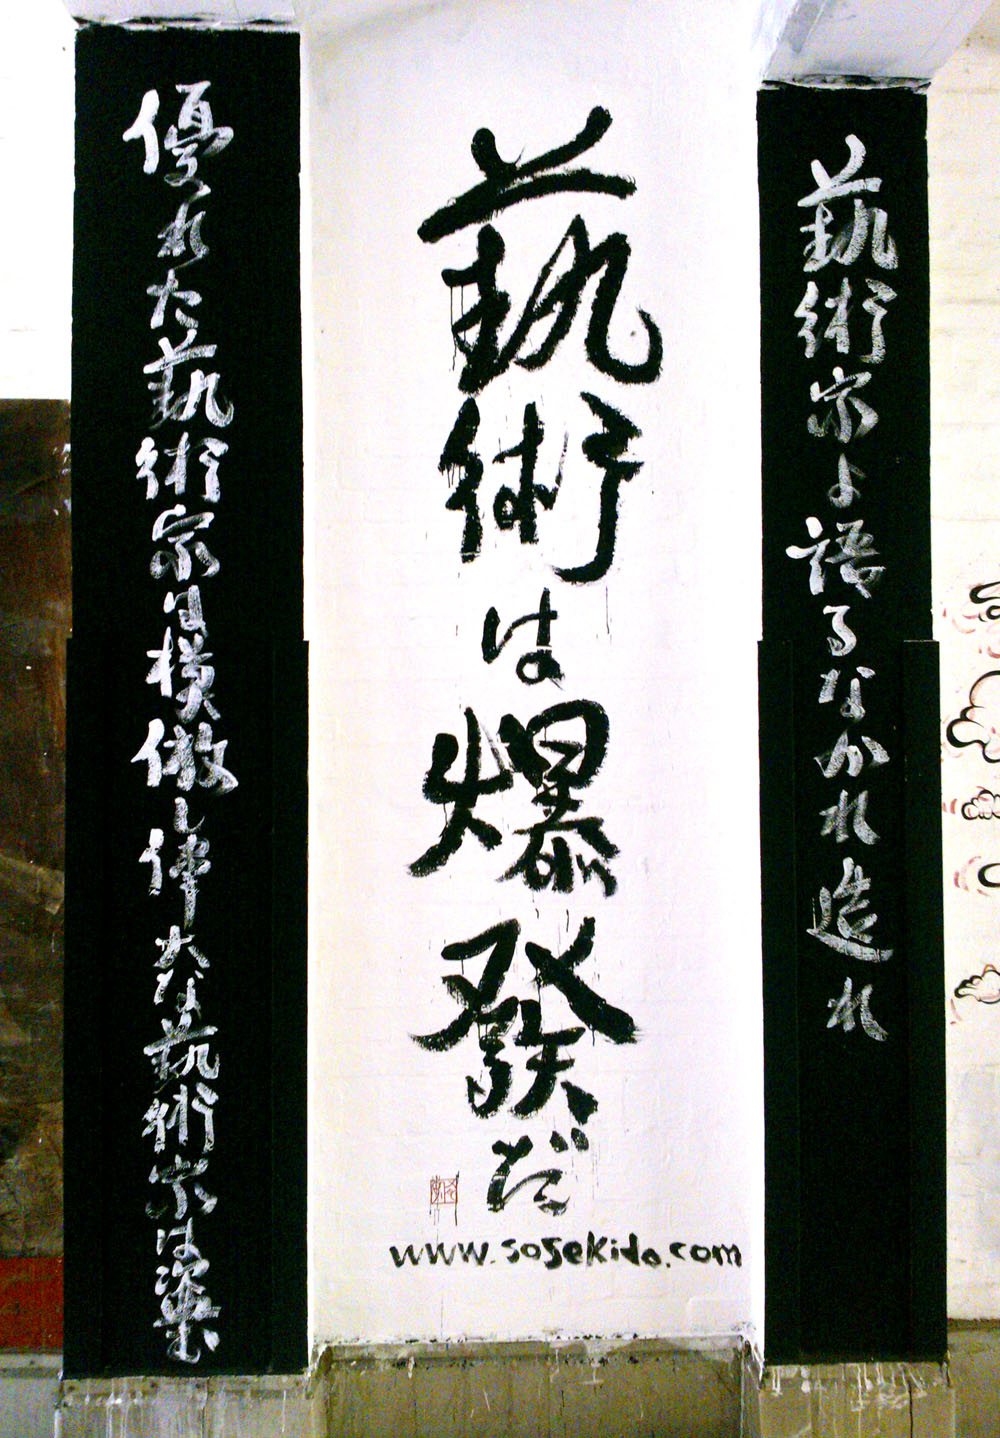 藝術家よ語るなかれ造れ
藝術は爆發だ
www.sosekido.com
優れた藝術家は模倣し偉大な藝術家は盗む